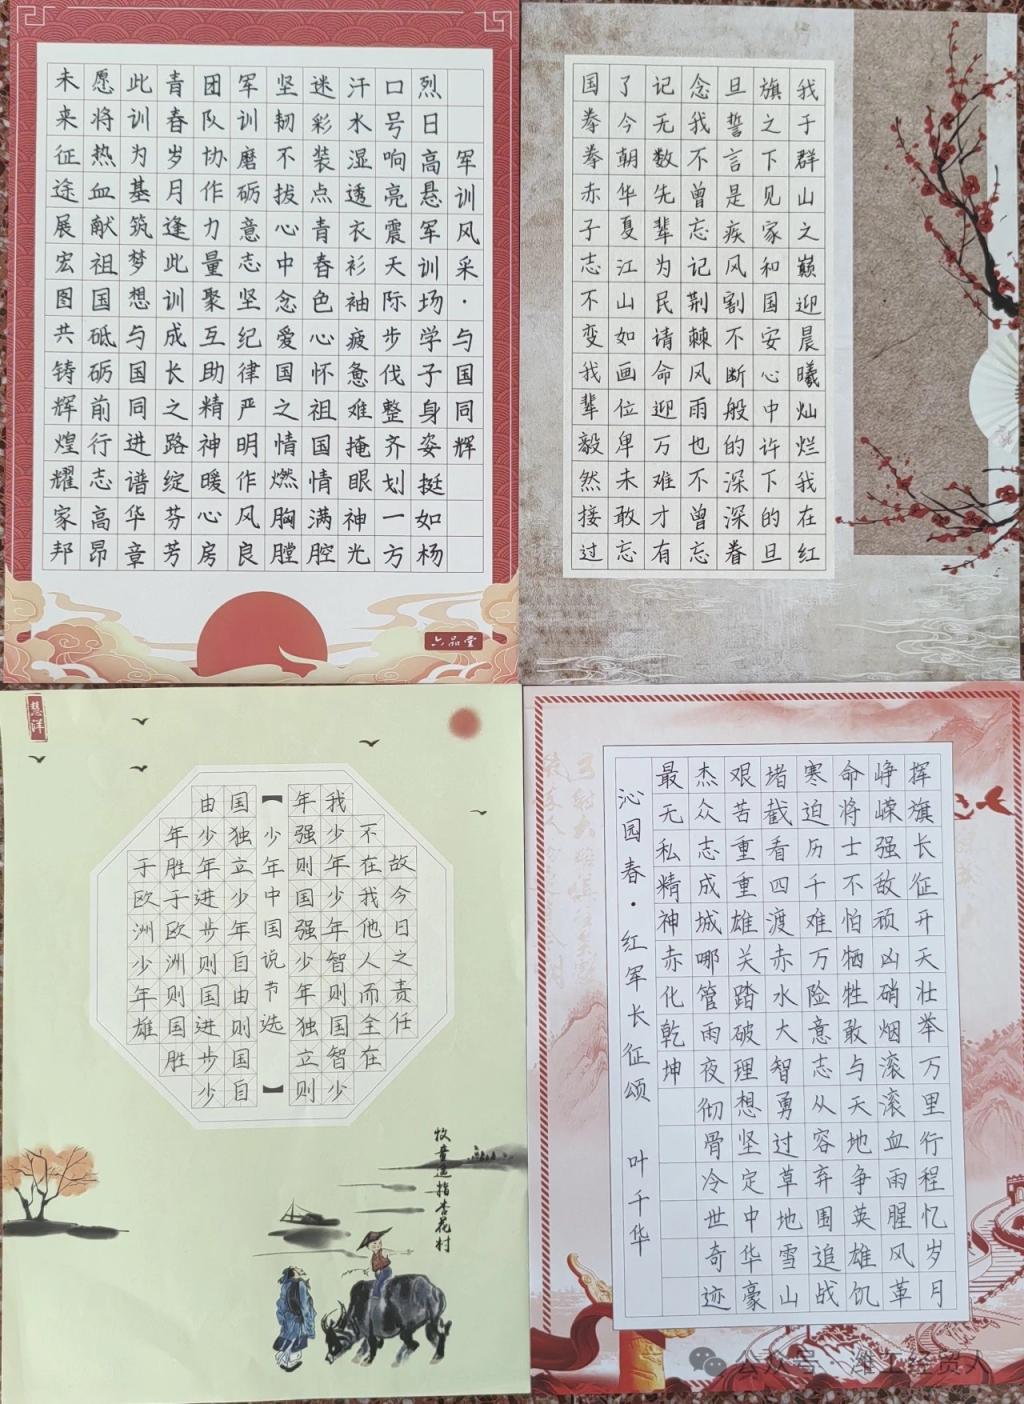 军训风采·与国同辉
烈日高悬军训场学子身姿挺如杨
口号响亮震天际步伐整齐划一方
汗水湿透衣衫袖疲惫难掩眼神光
迷彩装点青春色心怀祖国情满腔
坚韧不拔心中念爱国之情燃胸膛
军训磨砺意志坚纪律严明作风良
团队协作力量聚互助精神暖心房
青春岁月逢此训成长之路绽芬芳
此训为基筑梦想与国同进谱华章
愿将热血献祖国砥砺前行志高昂
未来征途展宏图共铸辉煌耀家邦
六品堂
我于群山之巅迎晨曦灿烂我在红
旗之下见家和国安心中许下的旦
旦誓言是疾风割不断般的深深眷
念我不曾忘记荆棘风雨也不曾忘
记无数先辈为民请命迎万难才有
了今朝华夏江山如画位卑未敢忘
国拳拳赤子志不变我辈毅然接过
慧洋
故今日之责任
不在我他人而全在
我少年少年智则国智少
年强则国强少年独立则
【少年中国说节选】
国独立少年自由则国自
由少年进步则国进步少
年胜于欧洲则国胜
于欧洲少年雄
牧童遥指杏花村
挥旗长征开天壮举万里行程忆岁月
峥嵘强敌顽凶硝烟滚滚血雨腥风革
命将士不怕牺牲敢与天地争英雄饥
寒迫历千难万险意志从容弃围追战
堵截看四渡赤水大智勇过草地雪山
艰苦重重雄关踏破理想坚定中华豪
杰众志成城哪管雨夜彻骨冷世奇迹
最无私精神赤化乾坤
沁园春·红军长征颂 叶千华
公众号·潍工经贸人